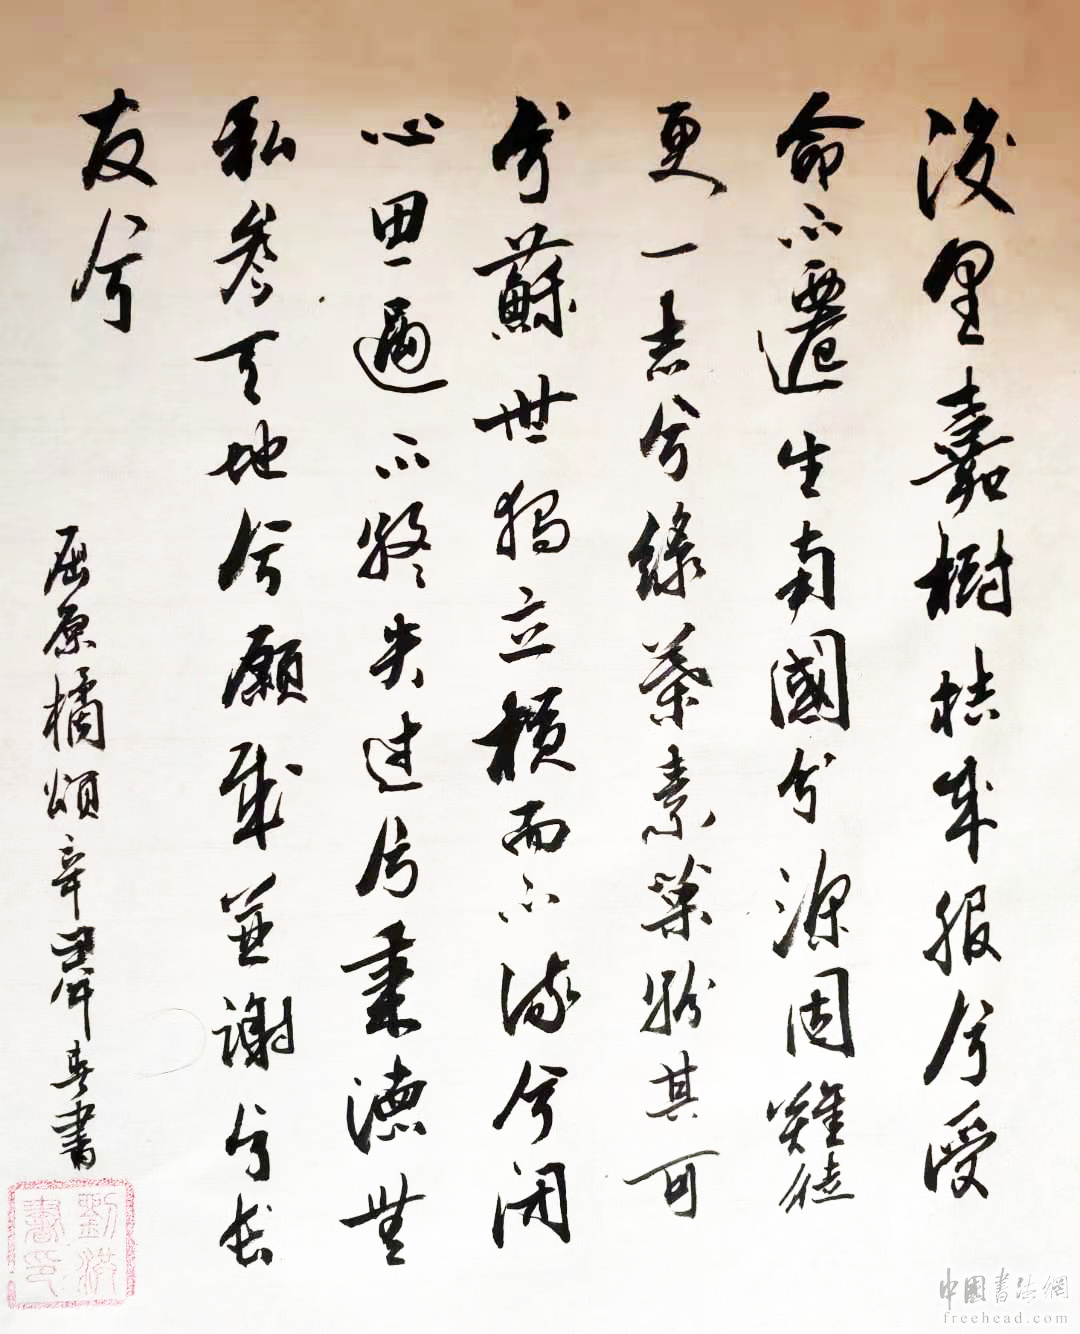 後皇嘉樹桔來服兮受
命不遷生南國兮深固難徙
更一志兮綠葉素榮紛其可
兮蘇世獨立橫而不流兮閉
心不終失過兮秉德無
私參天地兮願歲並謝兮長
友兮
屈原橘頌辛丑年春書
劉洪書印
中國书法網
freehead.com